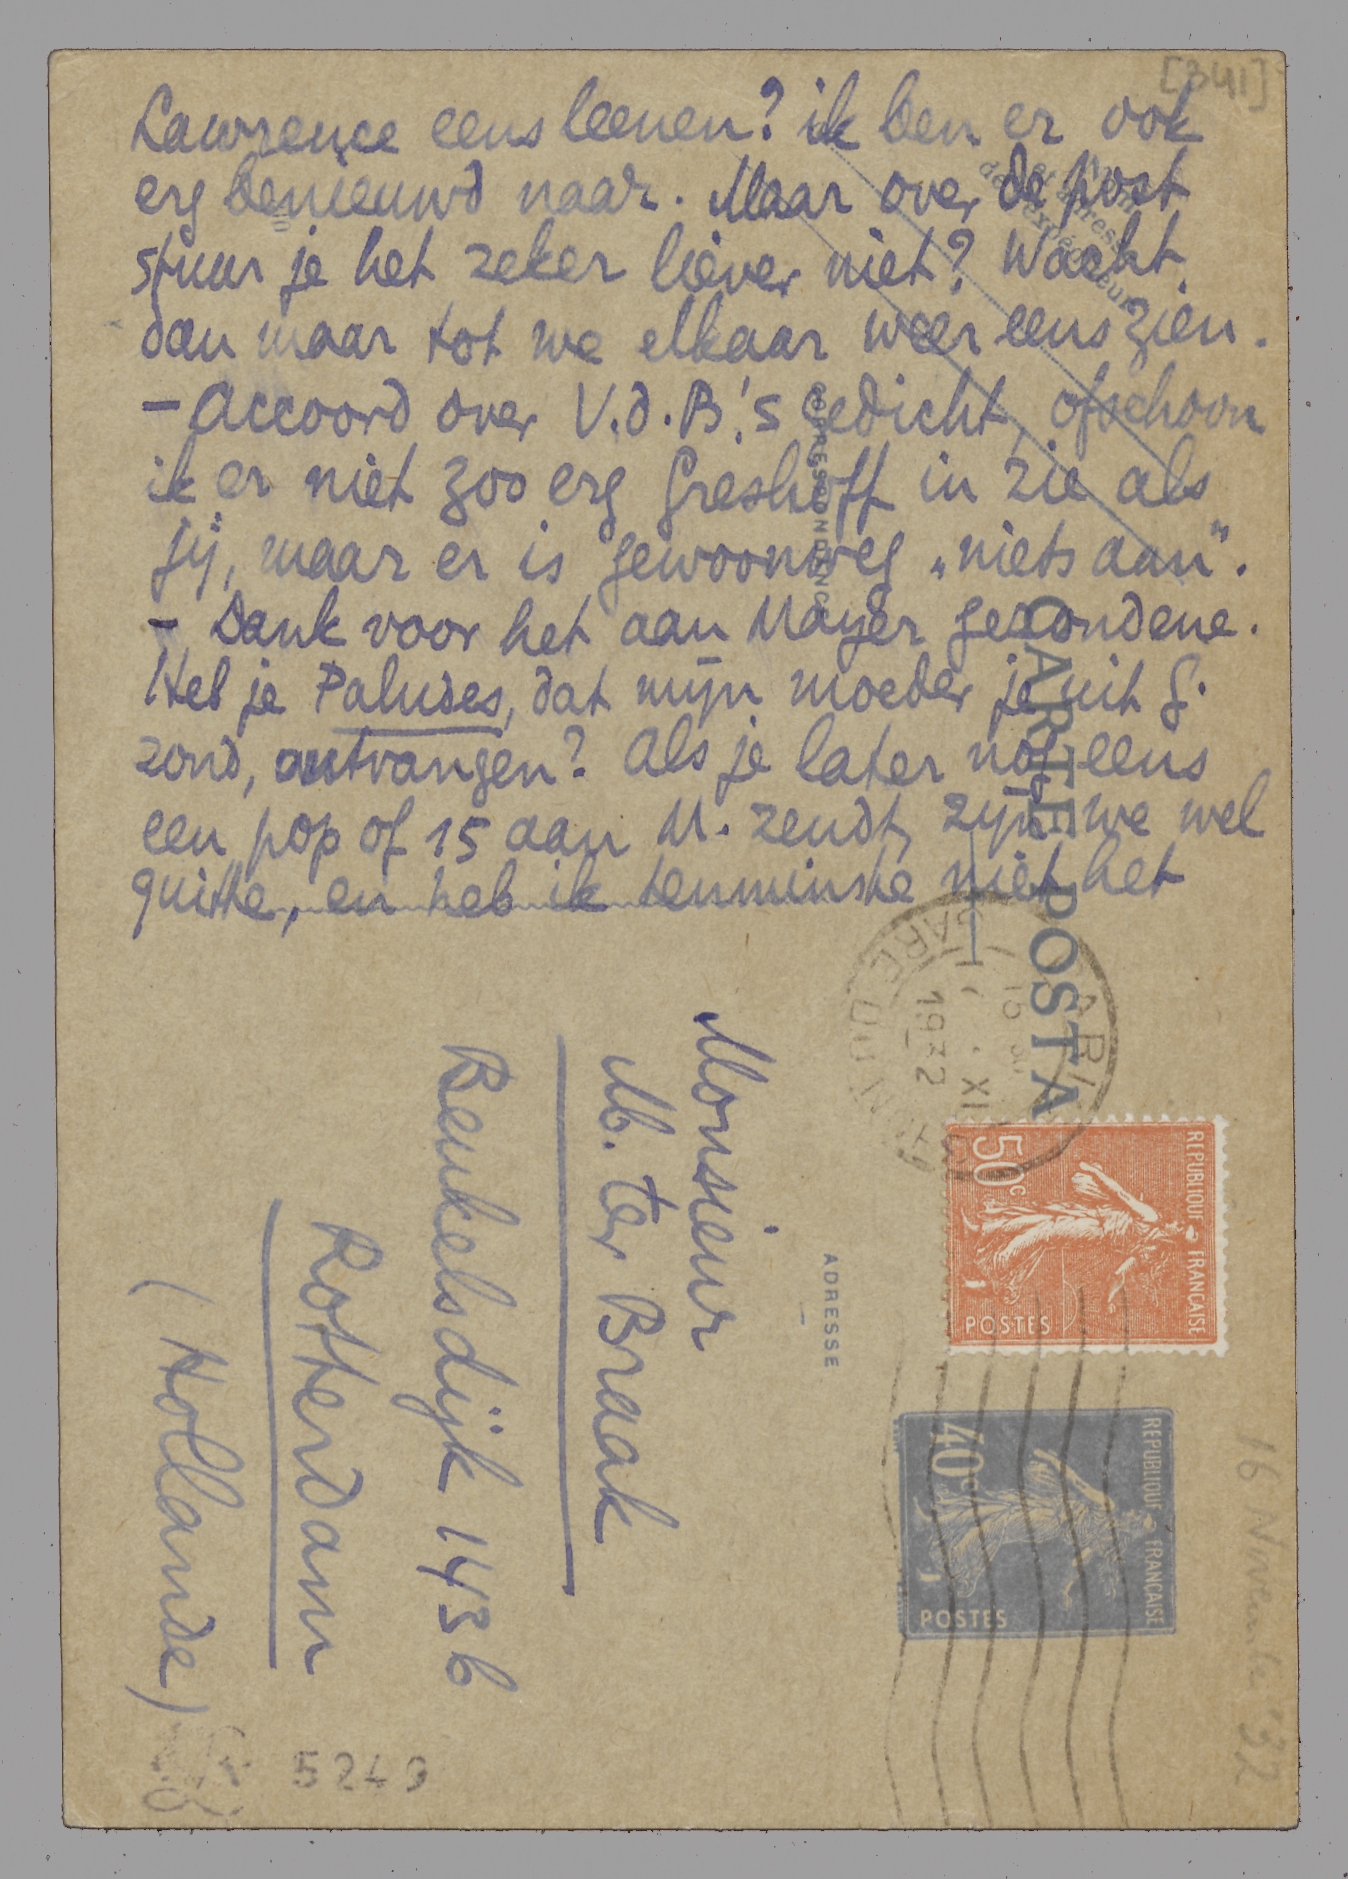 [341]
Lawrence eens leenen? ik ben er ook
erg benieuwd naar. Maar over de post
stuur je het zeker liever niet? Wacht
dan maar tot we elkaar weer eens zien.
— Accoord over V.d.B.'s gedicht, ofschoon
ik er niet zoo erg Greshoff in zie als
jij, maar er is gewoonweg „niets aan”.
— Dank voor het aan Mayer gezondene.
Heb je Paludes, dat mijn moeder je uit G.
zond, ontvangen? Als je later nog eens
een pop of 15 aan M. zendt, zijn we wel
quitte, en heb ik tenminste niet het
CORRESPONDENCE
CARTE POSTA
GARE DU NORD
16
XI
1932
Monsieur
M. ter Braak
Beukelsdijk 143b
Rotterdam
(Hollande)
ADRESSE
REPUBLIQUE FRANÇAISE
50c
POSTES
REPUBLIQUE FRANÇAISE
40c
POSTES
16 November '32
5249